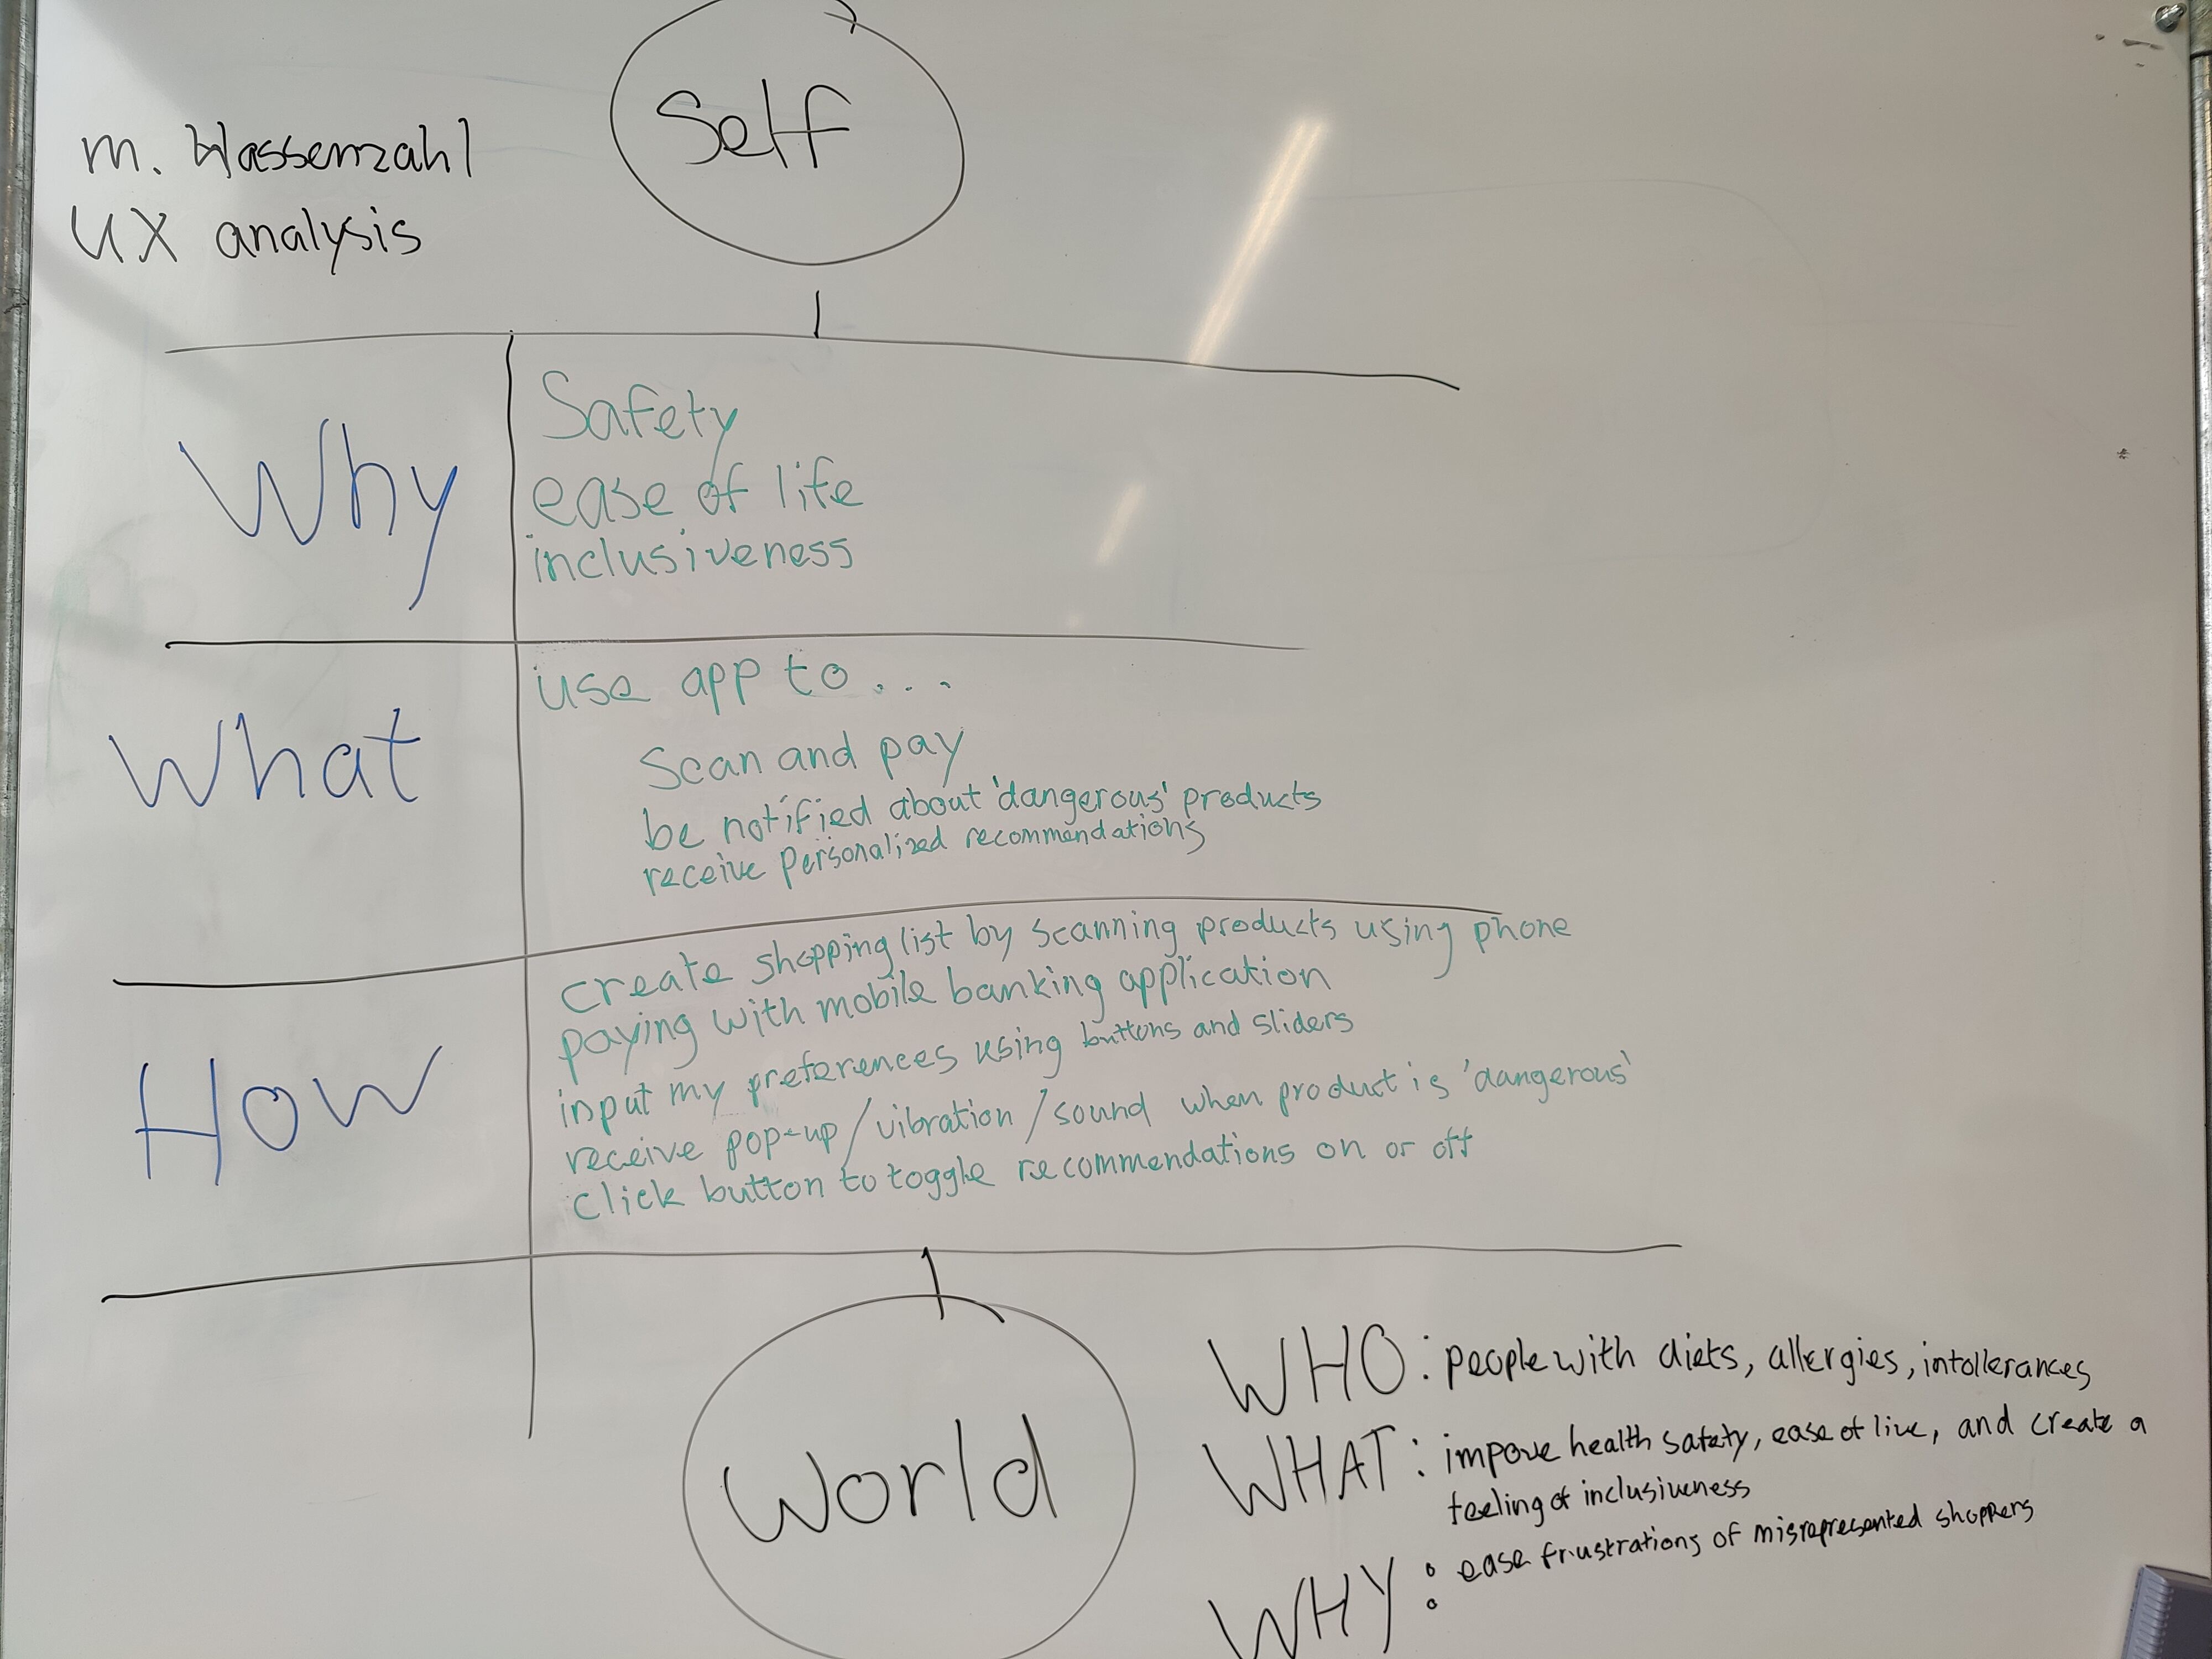 m. Hassenzahl
UX analysis
Self
Why
Safety
ease of life
inclusiveness
What
use app to...
Scan and pay
be notified about 'dangerous' products
receive personalized recommendations
How
create shopping list by scanning products using phone
paying with mobile banking application
input my preferences using buttons and sliders
receive pop-up/vibration/sound when product is 'dangerous'
click button to toggle recommendations on or off
World
WHO: people with diets, allergies, intollerances
WHAT: impove health safety, ease of live, and create a
feeling of inclusiveness
WHY: ease frustrations of misrepresented shoppers